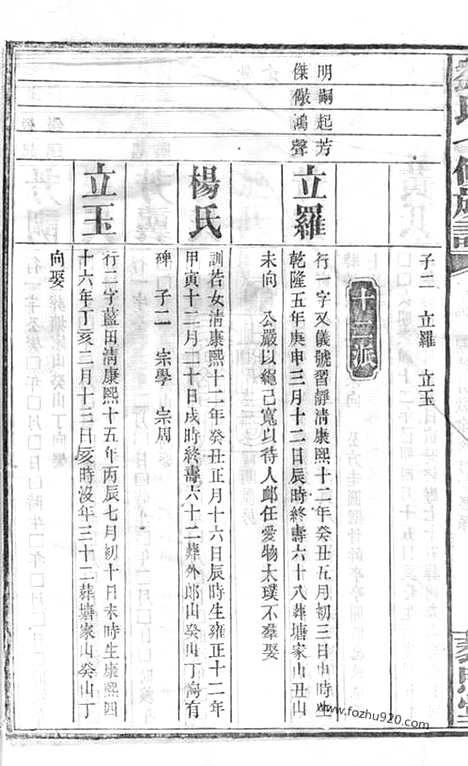 子二　立羅　立玉
十三派
明嗣起芳
傑儆鴻聲
立羅
行一字又儀號習靜淸康熙十二年癸丑五月初三日申時生
乾隆五年庚申三月十二日辰時終壽六十八葬塘家山丑山
未向　公嚴以繩己寬以待人卹任愛物太璞不羣娶
楊氏
訓若女淸康熙十二年癸丑正月十六日辰時生雍正十二年
甲寅十二月二十日戌時終壽六十二葬外郎山癸山丁向有
碑　子二　宗學　宗周
立玉
行二字藍田淸康熙十五年丙辰七月初十日未時生康熙四
十六年丁亥二月十三日亥時沒年三十二葬塘家山癸山丁
向娶
www.fozhu920.com